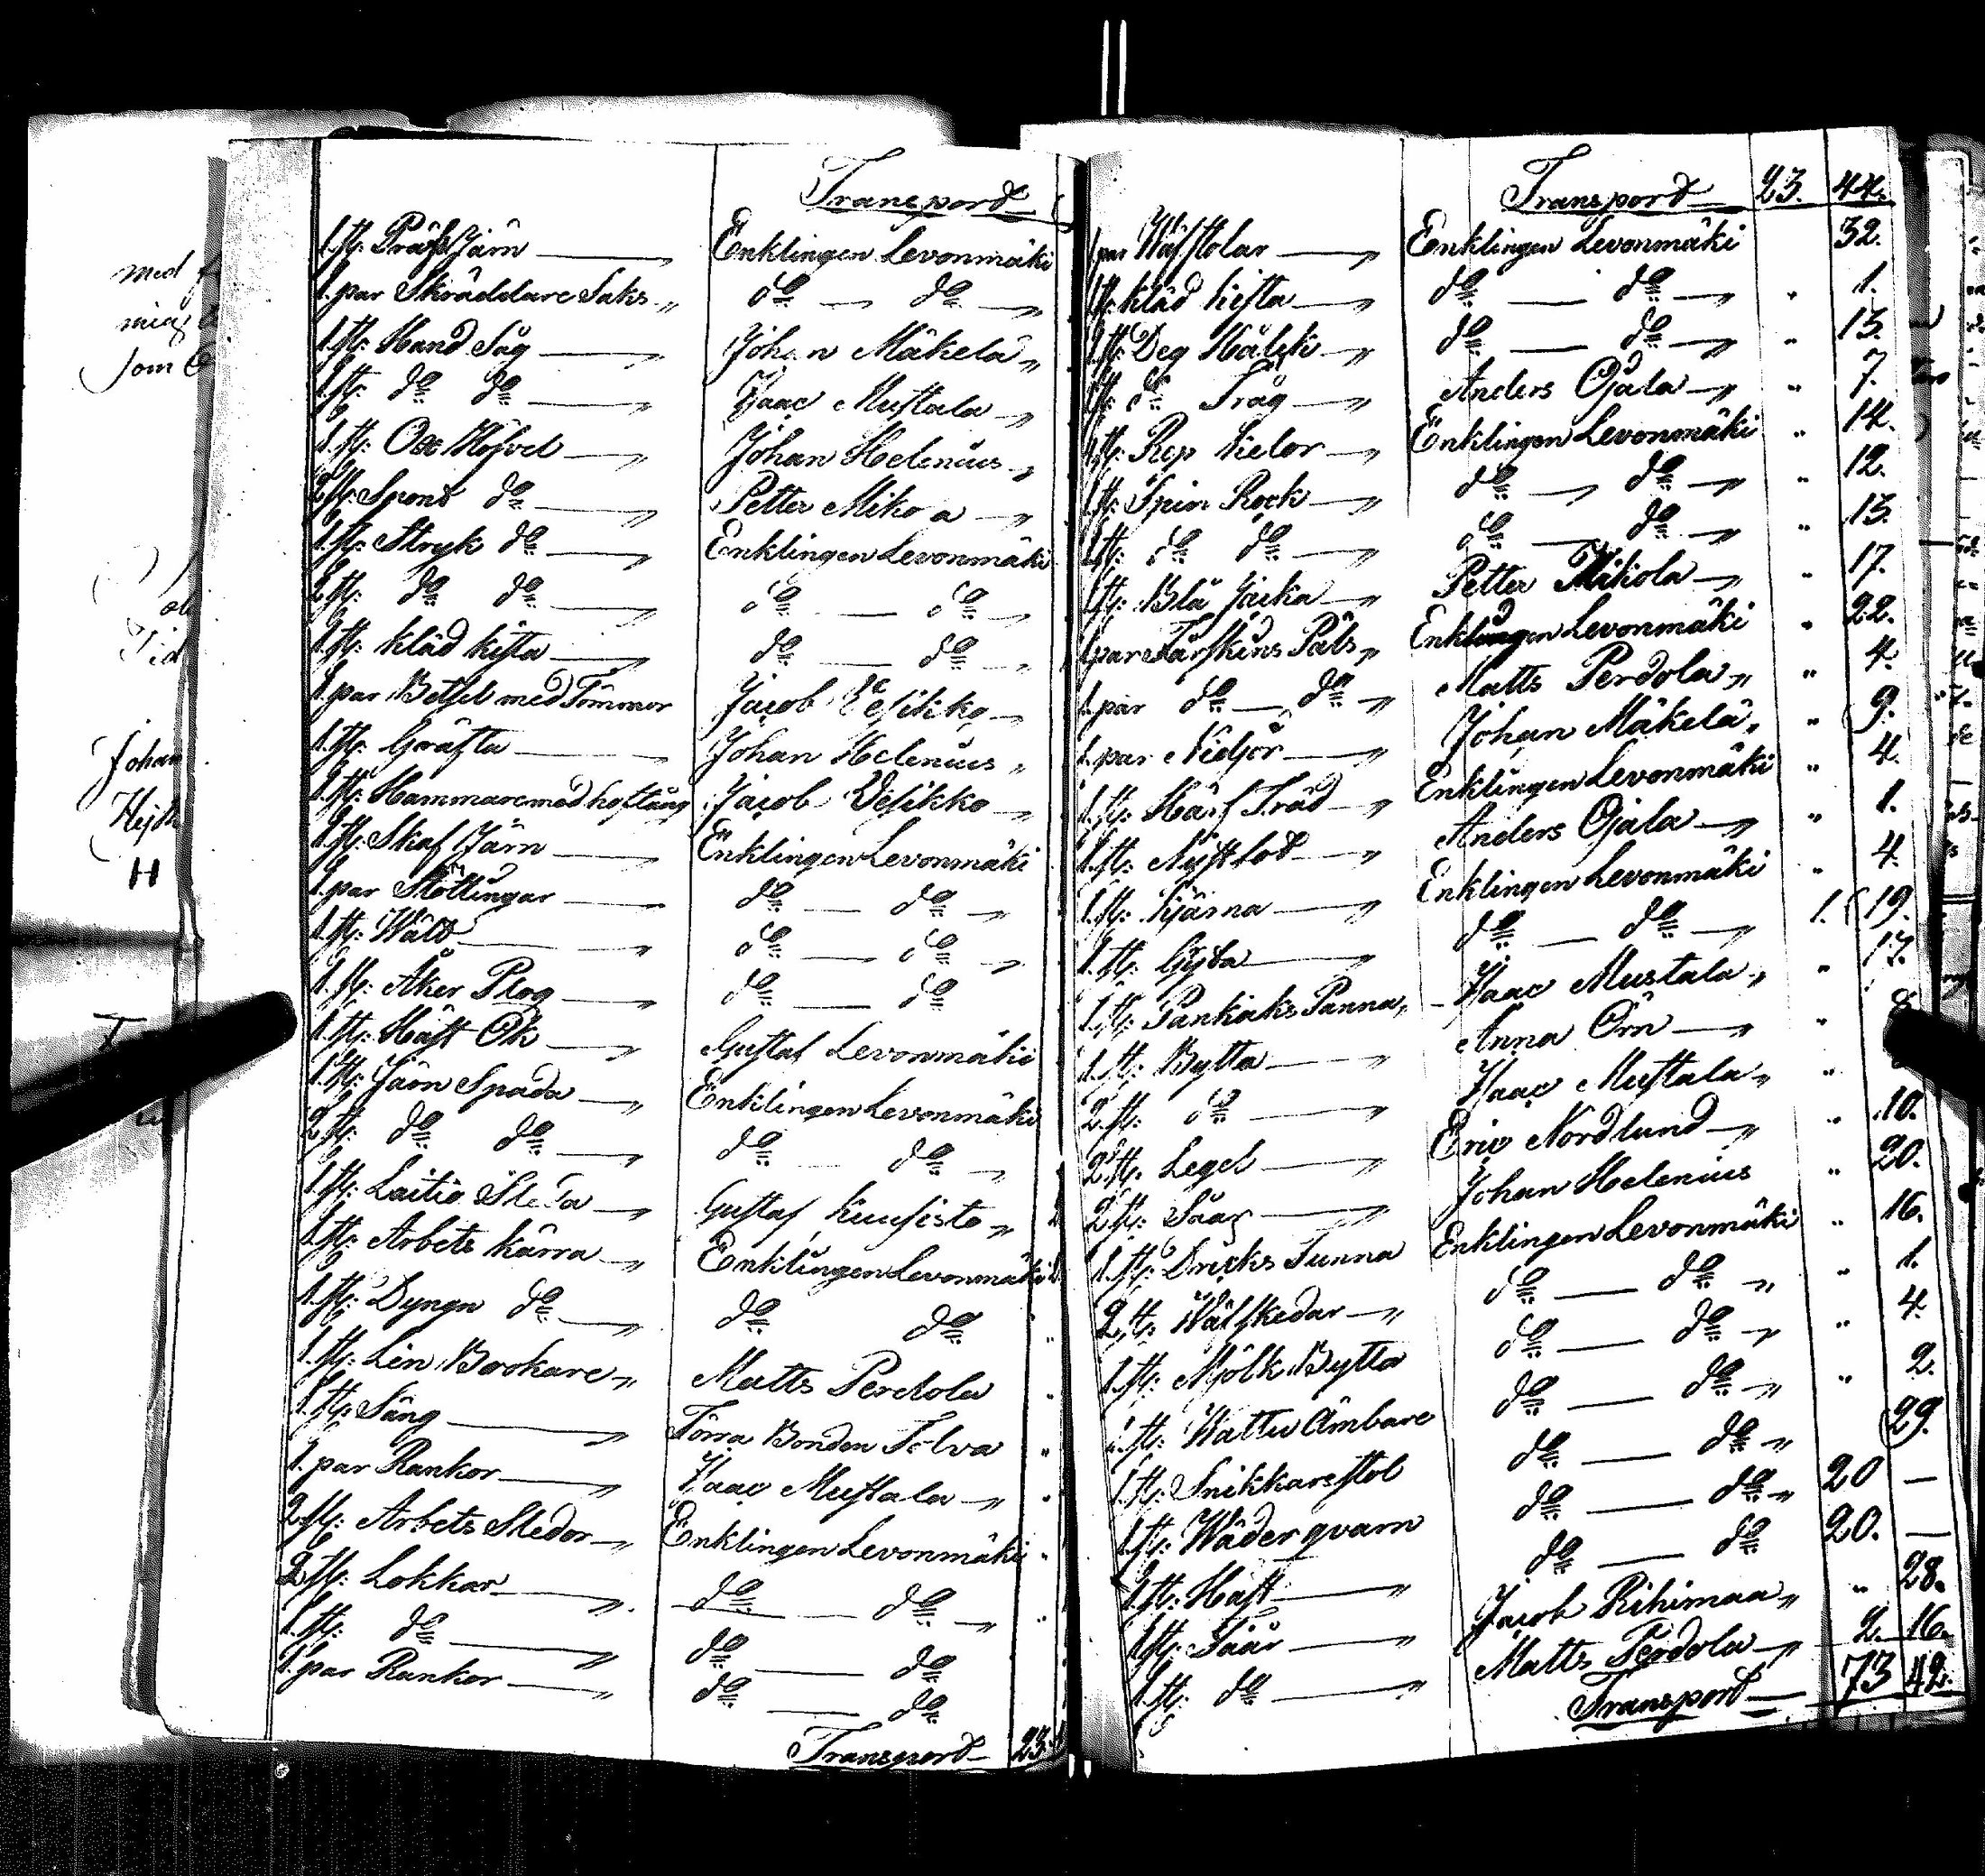 Transport
1. st: Präss Järn — Enklingen Levonmäki
1. par Skräddare Saks „ do — do
1. st: Hand Såg — Johan Mäkelä „
1. st: do do — Isaac Mustala „
1. st: Ox Höfvel — Johan Helenius „
2 st: Spont do — Petter Mikola „
1. st: Stryk do — Enklingen Levonmäki
2 st: do do — do — do
1. st: kläd kista — do — do
1. par Betsel med Tömmar Jacob Vesikko
1. st: Gräfta — Johan Helenius „
1. st: Hammare med hoftång Jacob Vesikko
1. st: Skaf Järn — Enklingen Levonmäki
1. par Stöttingar — do — do
1. st: Wält — do — do
1. st: Åker Plog — do — do
1. st: Häst Ok — Gustaf Levonmäki
1. st: Järn Spada — Enklingen Levonmäki
2 st: do do — do do
1. st: Laitio Släda — Gustaf Kuusisto „
1. st: Arbets kärra — Enklingen Levonmäki
1. st: Dyngn do — do do
1. st: Lin Brokare „ Matts Perdola
1. st: Säng — Torra Bonden Tolva
1. par Rankor — Isaac Mustala „
2. st: Arbets Sledor „ Enklingen Levonmäki
2 st: Lokkar — do — do
1. st: do — do — do
1. par Rankor — do — do
Transport 23.
Transport 23. 44.
1 par Wäfstolar — Enklingen Levonmäki 32.
1 st: kläd kista — do — do „ 1.
1 st: Deg — do — do „ 13.
1 st: do Tråg — Anders Ojala „ 7.
st: Rep kelor — Enklingen Levonmäki „ 14.
1 st: Spin Rock — do — do „ 12.
1 st: do do — do — do „ 13.
1 st: Blå Jacka — Petter Mikola „ 17.
1 par Fårskins Päls „ Enklingen Levonmäki „ 22.
1. par do — do „ Matts Perdola „ 4.
1. par — Johan Mäkelä „ 9.
1. st: Harf Träd — Enklingen Levonmäki „ 4.
1. st: — Anders Ojala „ 1.
1. st: Kjärna — Enklingen Levonmäki „ 4.
1. st: Gryta — do — do 1. 19.
1. st: Pankaks Panna „ Isaac Mustala „ 17.
1. st: Bytta — Anna Örn „ 8
2. st: do — Isaac Mustala „
2. st: Legel — Eric Nordlund „ 10.
2 st: Såar — Johan Helenius „ 20.
1. st: Dricks Tunna Enklingen Levonmäki „ 16.
2 st: Wäfskedar — do — do „ 1.
1. st: Mjölk Bytta do — do „ 4.
st: Wattu Ämbare do — do „ 2.
1 st: Snikkarestol do — do „ 29.
1 st: Wäder qvarn do — do „ 20 —
1 st: Häst — do — do 20. —
1 st: Såår — Jacob Rihimaa „ 28.
1 st: do — Matts Perdola „ 2. 16.
Transport 73 42.